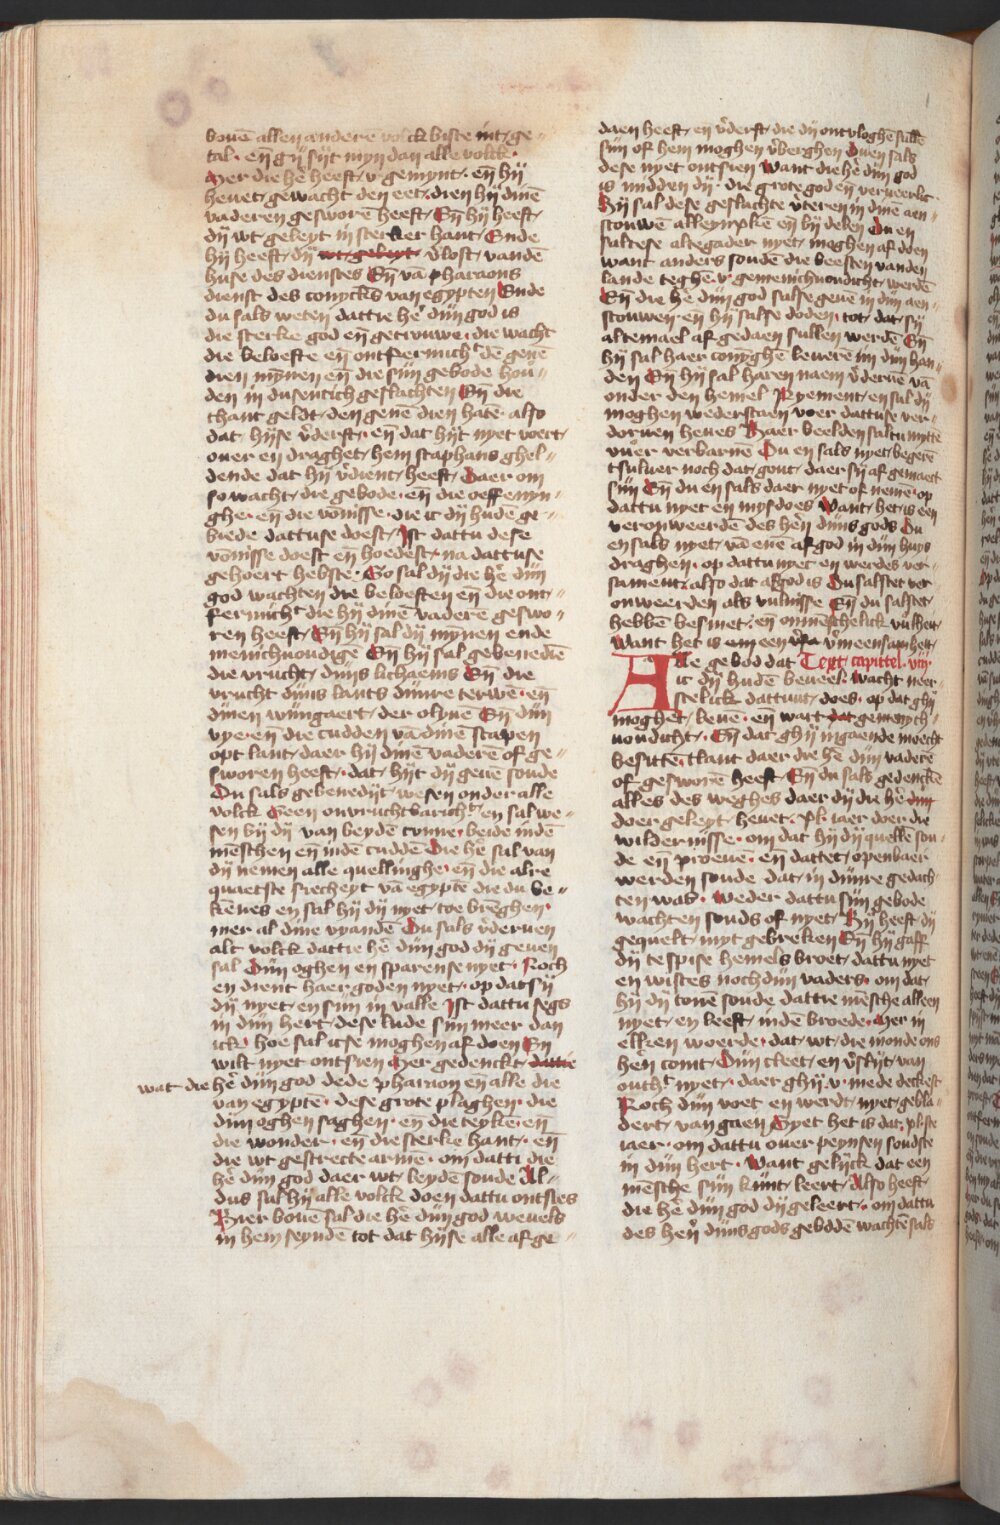 bouē allen anderē volck biste int ge„
tal· en̄ gij sijt myn dan alle volck·
Mer die hē heeft v gemynt· en̄ hij
heuet gewacht den eet· dien hij dinē
vaderen gesworē heeft· En̄ hij heeft
dij wt geleyt in stercker hant· Ende
hij heeft dij wt geleyt v̄lost vandē
huse des dienstes En̄ vā pharaons
dienst des conyck̄s van egypten Ende
du sals weten dattie hē dijn god is
die sterke god en̄ getrouwe· die wacht
die beloefte en̄ ontfermich͛ dē genē
dien mynen en̄ die sijn gebode hou„
den in dusentich geslachten En̄ die
thant geldt den genē dien hatē· also
dat hijse v̄derft· en̄ dat hijt nyet voert
ouer en draghet hem staphans ghel„
dende dat hij v̄dient heeft· Daer om
so wacht die gebode· en̄ die oeffenyn„
ghe· en̄ die vōnisse· die ic dij hudē ge„
biede dattuse doest· Ist dattu dese
vōnisse doest en̄ hoedest· na dattuse
gehoert hebste· So sal dij die hē dijn
god wachten die beloeften en̄ die ont„
fermich͛ die hij dinē vaderē geswo„
ren heeft· En̄ hij sal dij mynen ende
menichuoudigē En̄ hij sal gebenediē
die vrucht dijns lichaems En̄ die
vrucht dijns lants dijnre terwē· en̄
dijnen wijngaert der olyuē En̄ dijn
vyeren die cudden vā dinē scapen
opt lant daer hij dinē vaderē of ge„
sworen heeft· dat hijt dij geuē soude
Du sals gebenedijt wesen onder alle
volck Geen onvruchtbarich͛ en sal we„
sen bij dij van beydē cunne· beide indē
mēschen en̄ indē cuddē Die hē sal van
dij nemen alle quellinghe· en̄ die alre
quaetste siecheyt vā egyptē die du be„
kēnes en sal hij dij nyet toe brēghen·
mer al dine vyandē Du sals v̄deruen
alt volck dattie hē dijn god dij geuen
sal Dijn oghen en sparense nyet· Noch
en dient haer goden nyet· op dat sij
dij nyet en sijn in valle Ist dattu segs
in dijn hert dese lude sijn meer dan
ick· hoe sal icse moghen af doen En
wilt nyet ontsien Mer gedenckt dattie
wat die hē dijn god dede pharaon en̄ alle die
van egyptē· dese grote plaghen· die
dijn oghen saghen· en̄ die teykē· en̄
die wonder· en̄ die sterke hant· en̄
die wt gestrecte armē· om datti die
hē dijn god daer wt leydē soude Al„
dus sal hij alle volck doen dattu ontsies
Hier bouē sal die hē dijn god weuels
in hem seyndē tot dat hijse alle af ge„
daen heeft· en v̄derft die dij ontvloghē sullē
sijn of hem moghen v̄berghen Duen sals
dese nyet ontsien Want die hē dijn god
is midden dij· die grote god en̄ verueerlic·
Hij sal dese geslachte v̄teren in dinē aen„
scouwē alleynskē en̄ bij delen Du en
saltese altegader nyet moghen af doen
want anders soudē die beesten vanden
lande teghē v gemenichuoudicht werdē
En̄ die hē dijn god salse geuē in dijn aen„
scouwen· en̄ hij salse doden· tot dat sij
altemael af gedaen sullen werdē En̄
hij sal haer conyghē leuerē in dijn han„
den En̄ hij sal haren naem v̄deruē vā
onder den hemel Nyement en sal dij
moghen wederstaen voer dattuse ver„
doruen heues Haer beelden saltu mitte
vuer verbarnē Du en sals nyet begerē
tsuluer noch dat gout daer sij af gemaect
sijn En̄ du en sals daer nyet of nemē· op
dattu nyet en mysdoes Want het is een
veronweerdē des hēn dijns gods Du
en sals nyet vā enē afgod in dijn huys
draghen· op dattu nyet en werdes ver„
sament· also dat afgod is Du salstet ver
onweerden als vulnisse En̄ du salstet
hebbē besmet· en̄ onmēschelick vulheit
Want het is een v̄meensamheit
Alle gebod dat Text capittel· viij·
ic dij hudē beueel· wacht neer„
stelick dattuut does· op dat ghij
moghet leuē· en̄ wart dat gemenych„
uoudicht· En̄ dat ghij ingaende moecht
besittē· tlant daer die hē dijn vaderē
of gesworē heeft· En̄ du sals gedencken
alles des weghes daer dij die hē dijn
doer geleyt heuet· xl· iaer doer die
wildernisse· om dat hij dij quellē sou„
de en̄ proeue· en̄ dattet openbaer
werden soude dat in dijnre gedach„
ten was· weder dattu sijn gebode
wachten souds of nyet· Hij heeft dij
gequelt myt gebreken En̄ hij gaff
dij te spise hemels broet dattu nyet
en wistes noch dijn vaders· om dat
hij dij tonē soude dattie mēsche alleen
nyet en leeft indē broede· Mer in
elken woerde· dat wt die monde ons
hēn comt· Dijn cleet en v̄slijt van
outh͛ nyet· daer ghij v· mede deckest
Noch dijn voet en werdt nyet gebla„
dert van gaen Syet het is dat xl·ste
iaer· om dattu ouer peynsen soudste
in dijn hert· Want gelijck dat een
mēsche sijn kijnt leert· Also heeft
die hē dijn god dij geleert· om dattu
des hēn dijns gods geboddē wachtē sals